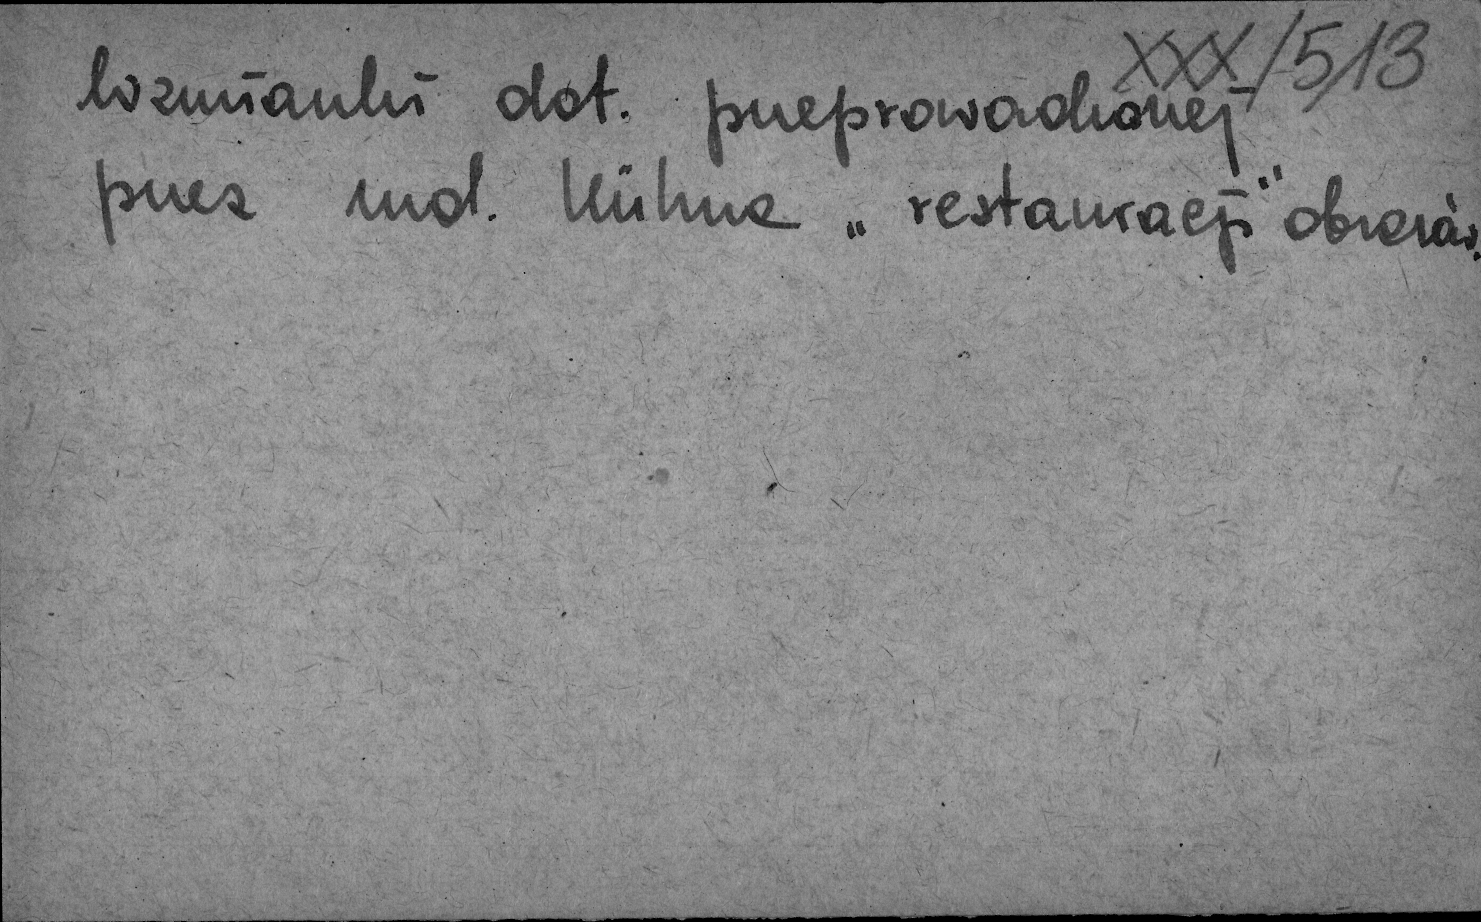 XXX/513
Wzmianki dot. przeprowadzonej
przez mal. Kühne „restauracji” obrazów.